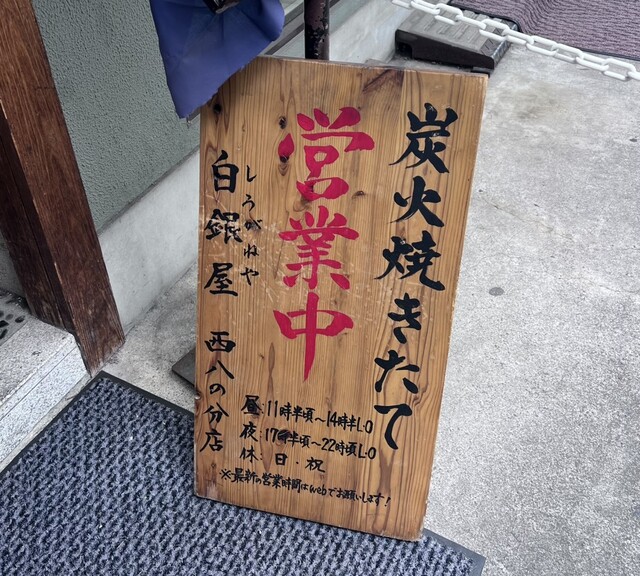 炭火焼きたて
営業中
しろがねや
白銀屋 西八の分店
昼:11時半頃~14時半L.O
夜:17時半頃~22時頃L.O
休:日・祝
※最新の営業時間はwebでお願いします!